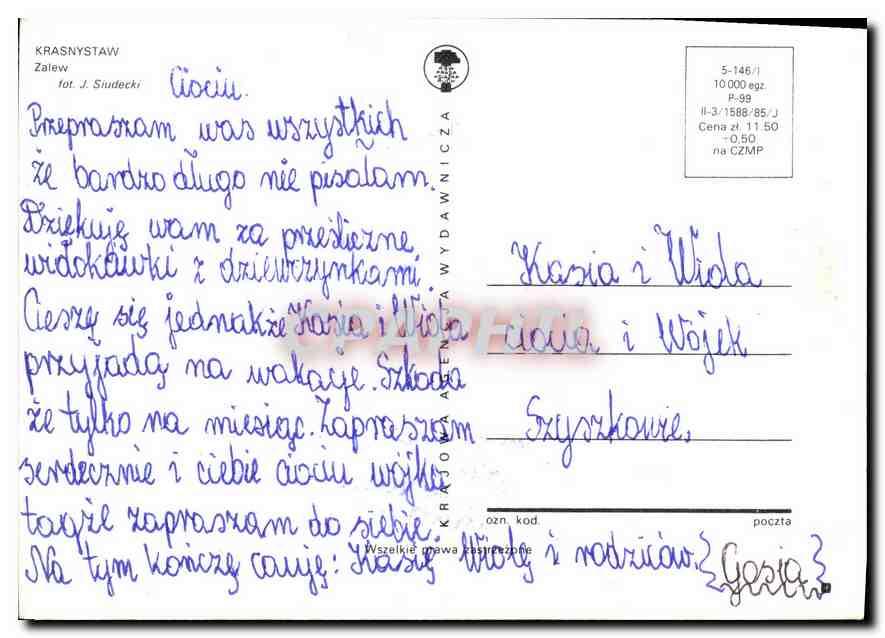 KRASNYSTAW
Zalew
fot. J. Siudecki
Ciociu.
Przepraszam was wszystkich
że bardzo długo nie pisałam.
Dziękuję wam za prześliczne
widokówki z dziewczynkami.
Cieszę się jednakże Kasia i Wiola
przyjadą na wakacje. Szkoda
że tylko na miesiąc. Zapraszam
serdecznie i ciebie ciociu wójka
tagże zapraszam do siebie.
Na tym kończę całuję: Kasię Wiolę i rodziców.
Gosia
KRAJOWA AGENCJA WYDAWNICZA
5-146/I
10 000 egz.
P-99
II-3/1588/85/J
Cena zł. 11.50
+0,50
na CZMP
Kasia i Wiola
ciocia i Wójek
Szyszkowie.
ozn. kod. poczta
Wszelkie prawa zastrzeżone
CPARHPIL